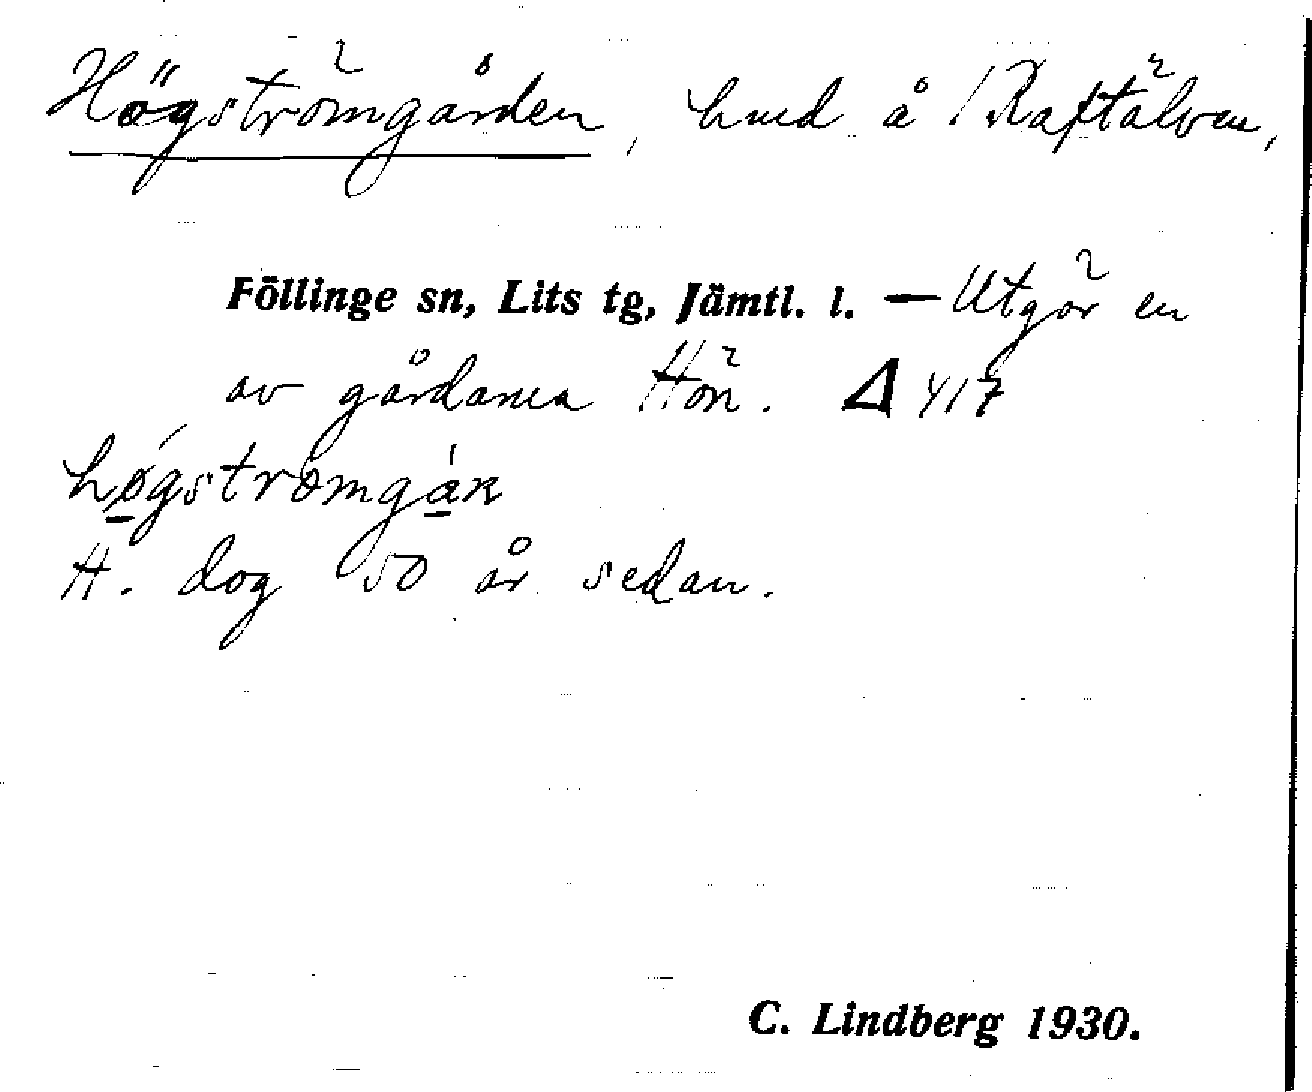 Högströmgården, hmd å Raftälven,
Föllinge sn, Lits tg, Jämtl. l. — Utgör en
av gårdarna Hön. Δ 417
høgströmgán
H. dog 50 år sedan.
C. Lindberg 1930.